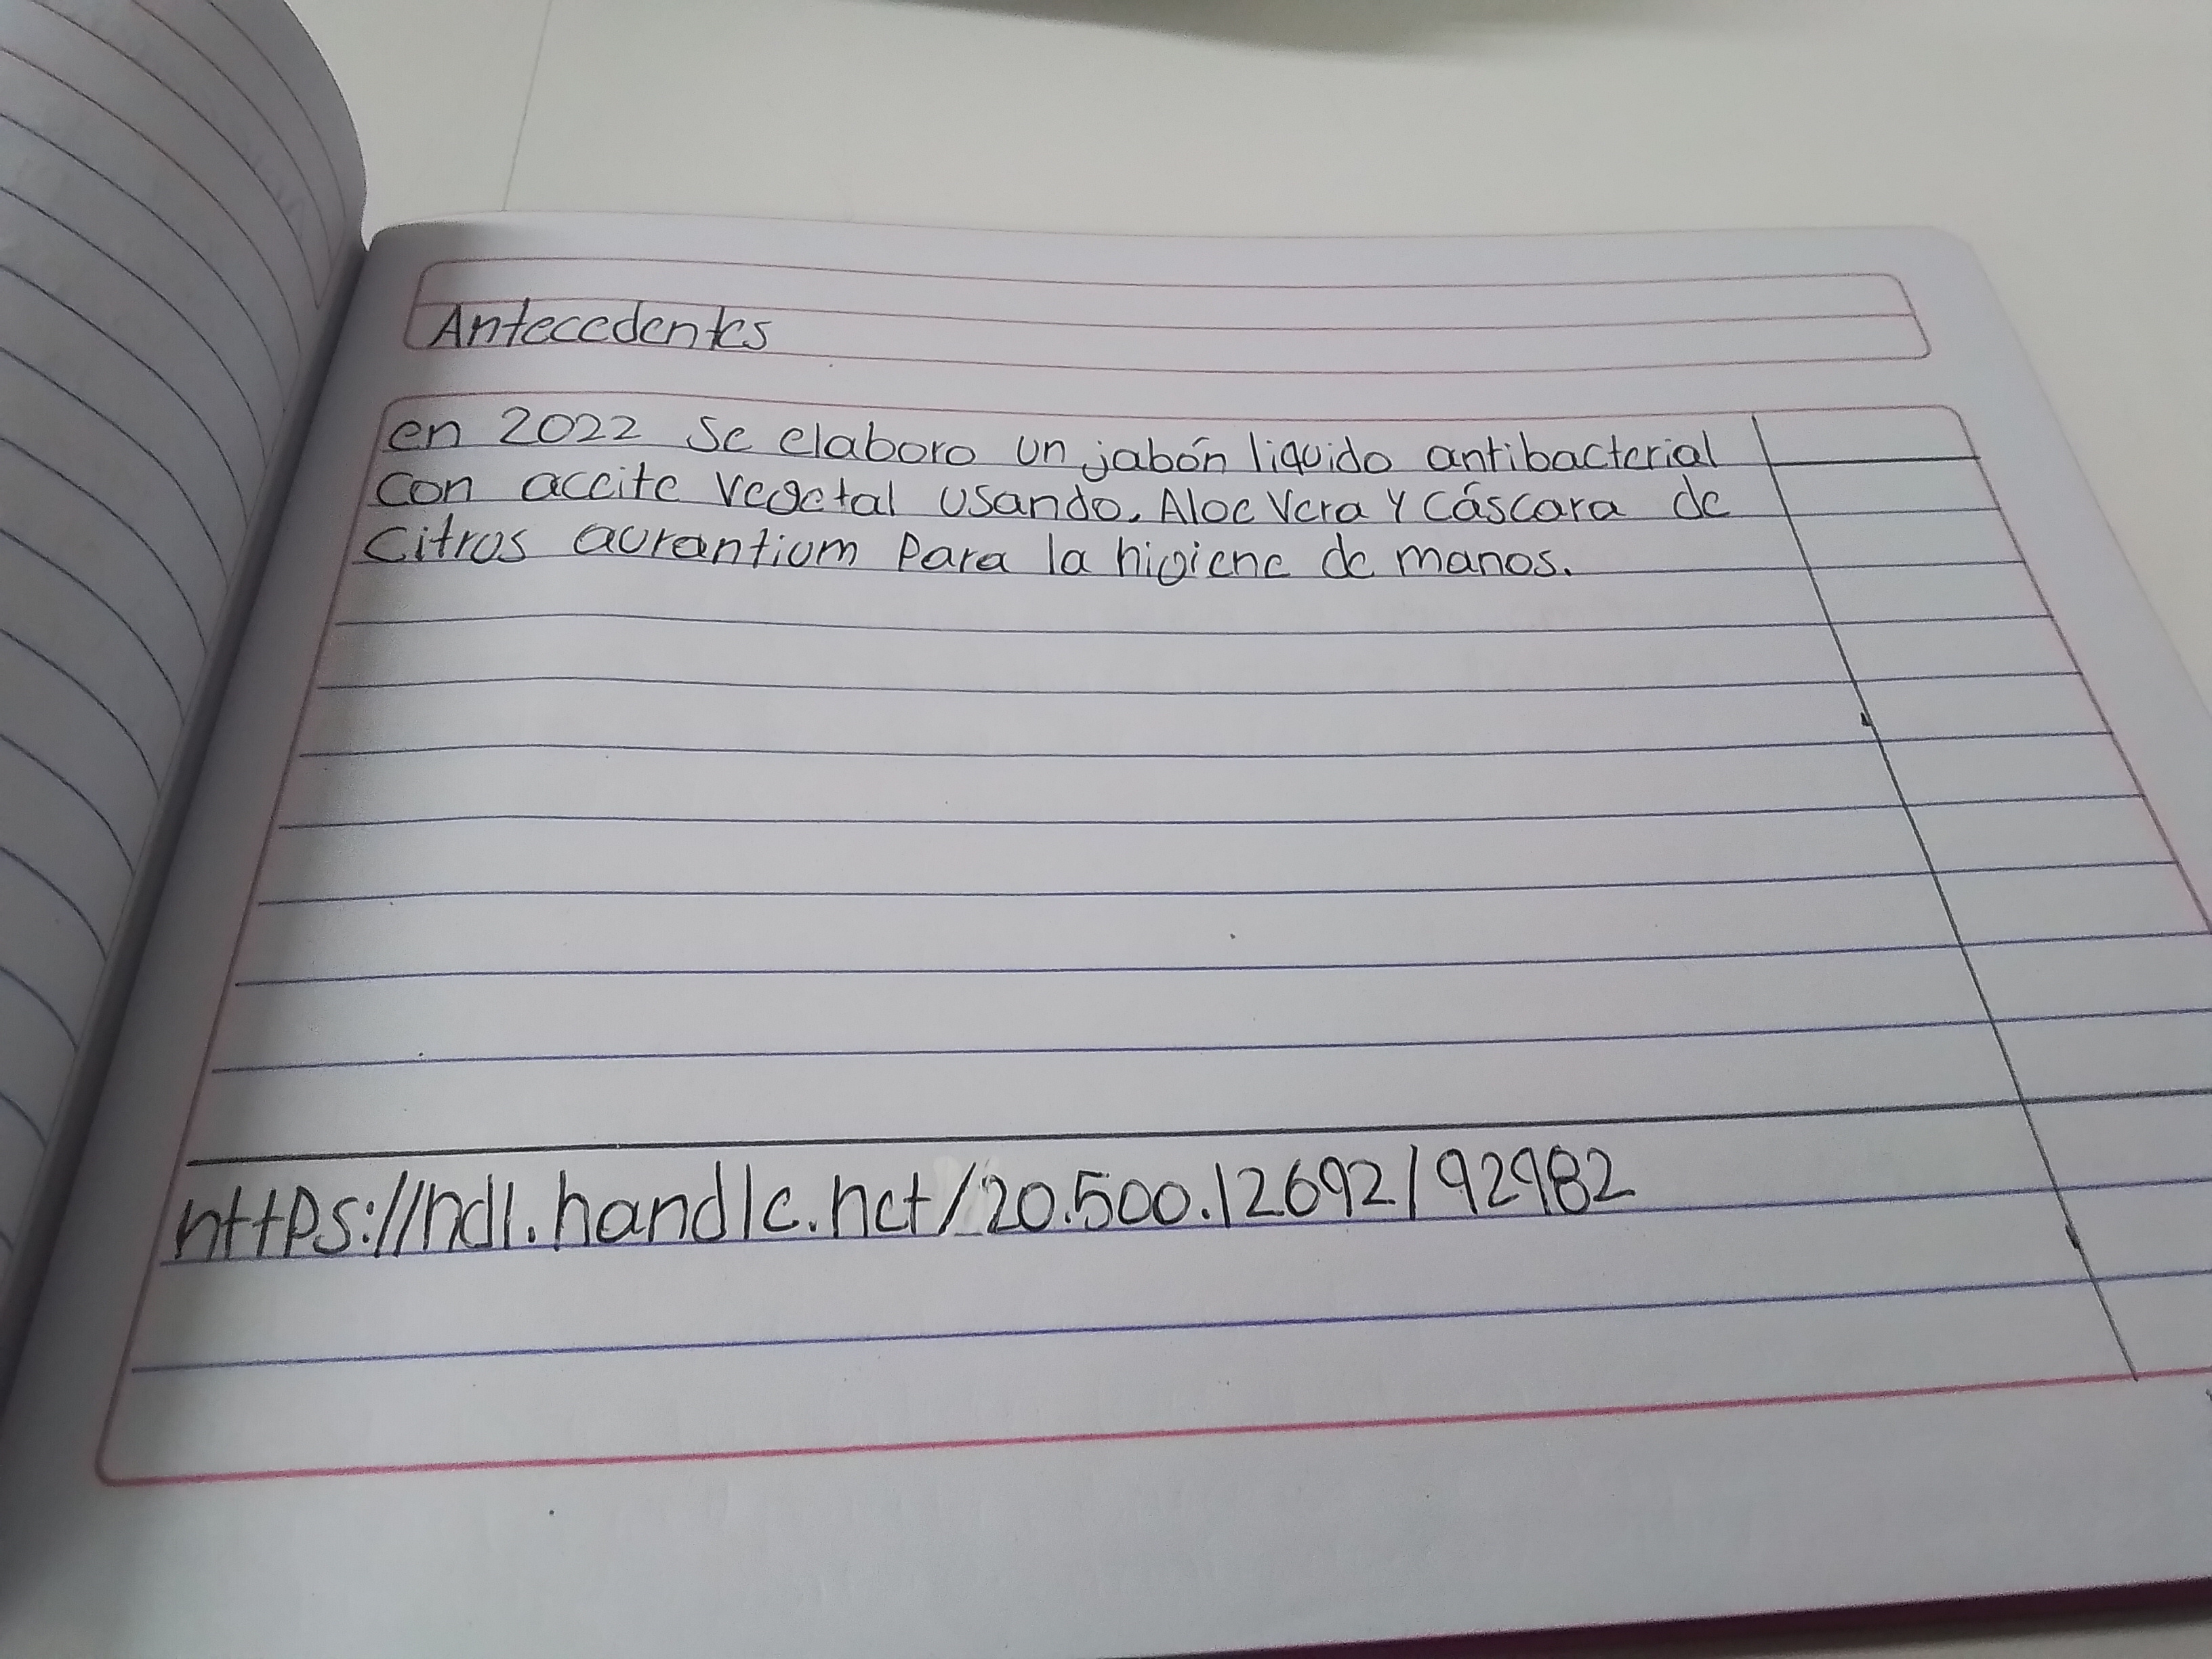 Antecedentes
en 2022 se elaboro un jabón liquido antibacterial
con aceite vegetal usando. Aloe vera y cáscara de
citrus aurantium para la higiene de manos.
https://hdl.handle.net/20.500.12692/92982